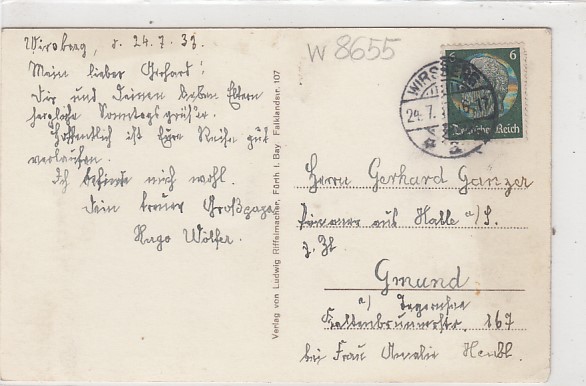 Wirsberg, d. 24.7.33.
Mein lieber Gerhard!
Dir und Deinen lieben Eltern
herzliche Sonntagsgrüße.
Hoffentlich ist Eure Reise gut
verlaufen.
Ich befinde mich wohl.
Dein treuer Großpapa
Hugo Wölfer.
W 8655
6
WIRSBERG
24.7.
Deutsches Reich
Verlag von Ludwig Riffelmacher, Fürth i. Bay. Falklandstr. 107
Herrn Gerhard Ganzer
aus Halle a/S.
z. Zt
Gmund
a/ Tegernsee
Kaltenbrunnerstr. 167
bei Frau Amalie